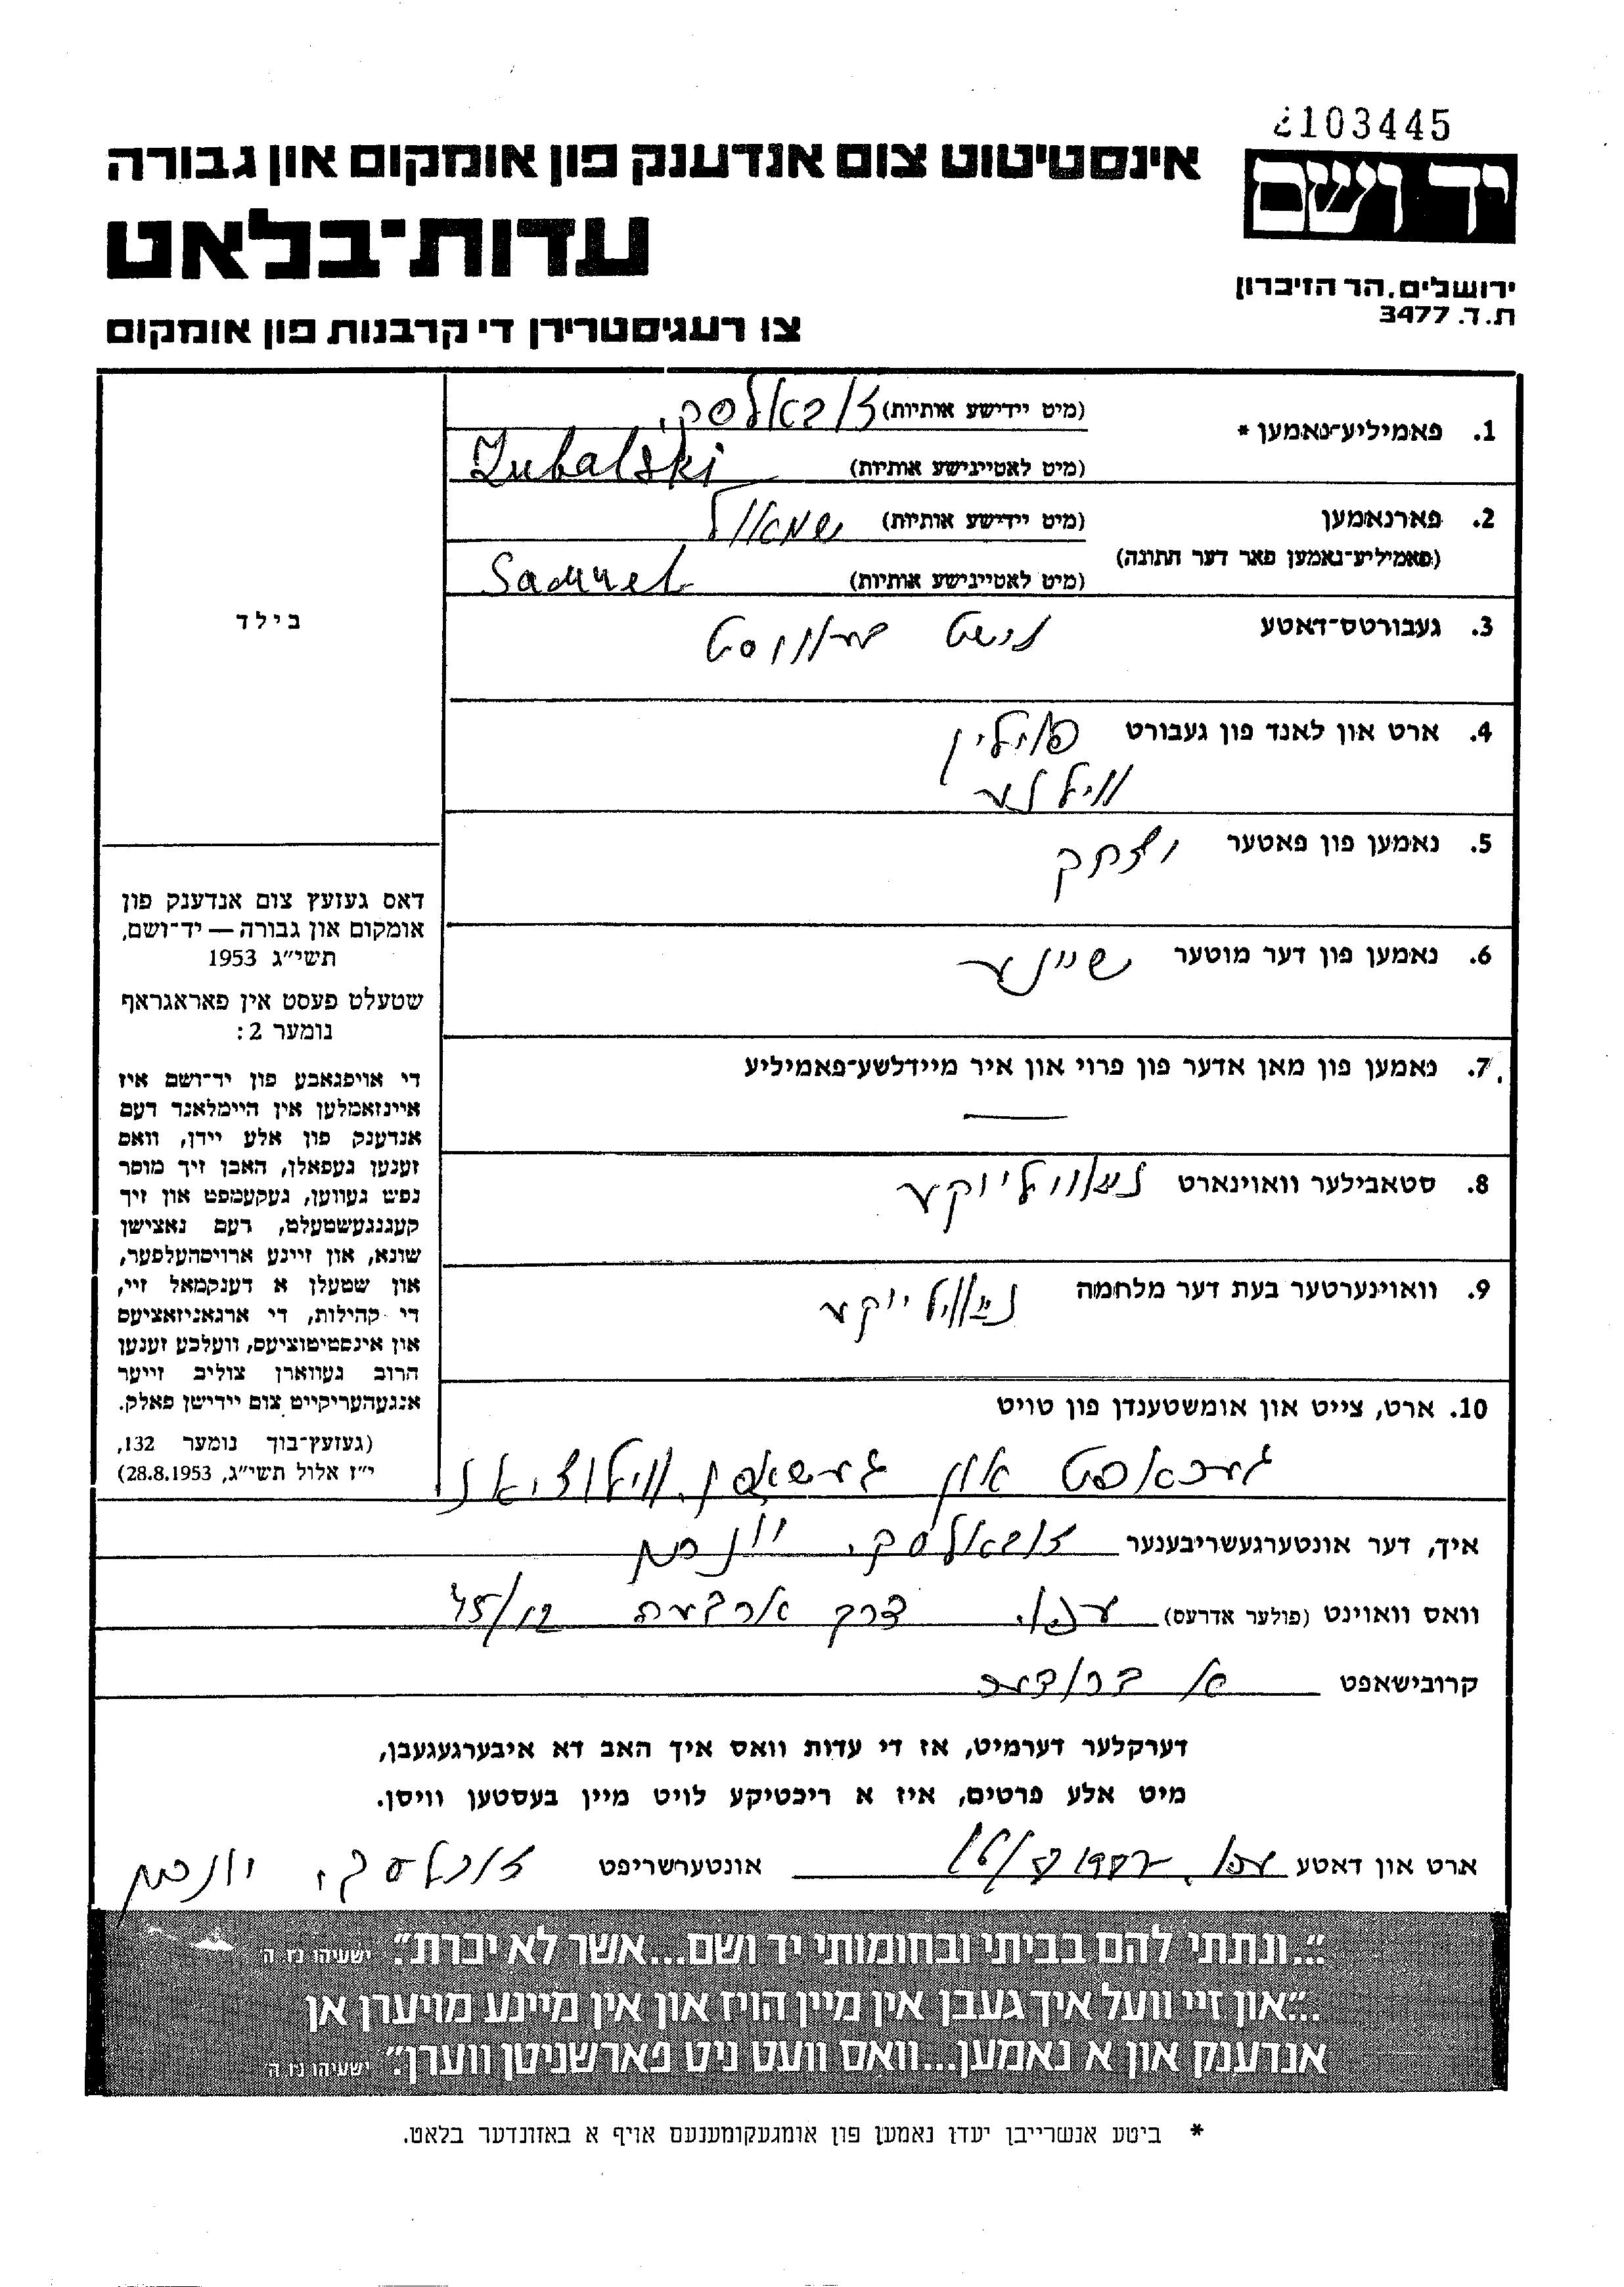 2103445
יד ושם
ירושלים, הר הזיכרון
ת.ד. 3477
אינסטיטוט צום אנדענק פון אומקום און גבורה
עדות־בלאט
צו רעגיסטרירן די קרבנות פון אומקום
1. פאמיליע־נאמען *
(מיט יידישע אותיות) זובאלסקי
(מיט לאטייבישע אותיות) Zubalski
2. פארנאמען
(פאמיליע־נאמען פאר דער חתונה)
(מיט יידישע אותיות) שמאול
(מיט לאטייבישע אותיות) Samuel
3. געבורטס־דאטע נישט באוווסט
4. ארט און לאנד פון געבורט פוילין
ווילנע
5. נאמען פון פאטער יצחק
6. נאמען פון דער מוטער שיינע
7. נאמען פון מאן אדער פון פרוי און איר מיידלשע־פאמיליע
8. סטאבילער וואוינארט
9. וואוינערטער בעת דער מלחמה
10. ארט, צייט און אומשטענדן פון טויט
געכאפט און
בילד
דאס געזעץ צום אנדענק פון
אומקום און גבורה — יד־ושם,
תשי״ג 1953
שטעלט פעסט אין פאראגראף
נומער 2:
די אויפגאבע פון יד־ושם איז
איינזאמלען אין היימלאנד דעם
אנדענק פון אלע יידן, וואס
זענען געפאלן, האבן זיך מוסר
נפש געווען, געקעמפט און זיך
קעגנגעשטעלט, דעם נאצישן
שונא, און זיינע ארויסהעלפער,
און שטעלן א דענקמאל זיי,
די קהילות, די ארגאניזאציעס
און אינסטיטוציעס, וועלכע זענען
הרוב געווארן צוליב זייער
אנגעהעריקייט צום יידישן פאלק.
(געזעץ־בוך נומער 132,
י״ז אלול תשי״ג, 28.8.1953)
איך, דער אונטערגעשריבענער זובאלסקי
וואס וואוינט (פולער אדרעס) עכו. דרך ארבעה 45/12
קרובישאפט א ברודער
דערקלער דערמיט, אז די עדות וואס איך האב דא איבערגעגעבן,
מיט אלע פרטים, איז א ריכטיקע לויט מיין בעסטען וויסן.
ארט און דאטע עכו אונטערשריפט זובאלסקי
״...ונתתי להם בביתי ובחומותי יד ושם...אשר לא יכרת״. ישעיהו נו, ה׳
...״און זיי וועל איך געבן אין מיין הויז און אין מיינע מויערן אן
אנדענק און א נאמען...וואס וועט ניט פארשניטן ווערן״. ישעיהו נו, ה׳
* ביטע אנשרייבן יעדן נאמען פון אומגעקומענעם אויף א באזונדער בלאט.